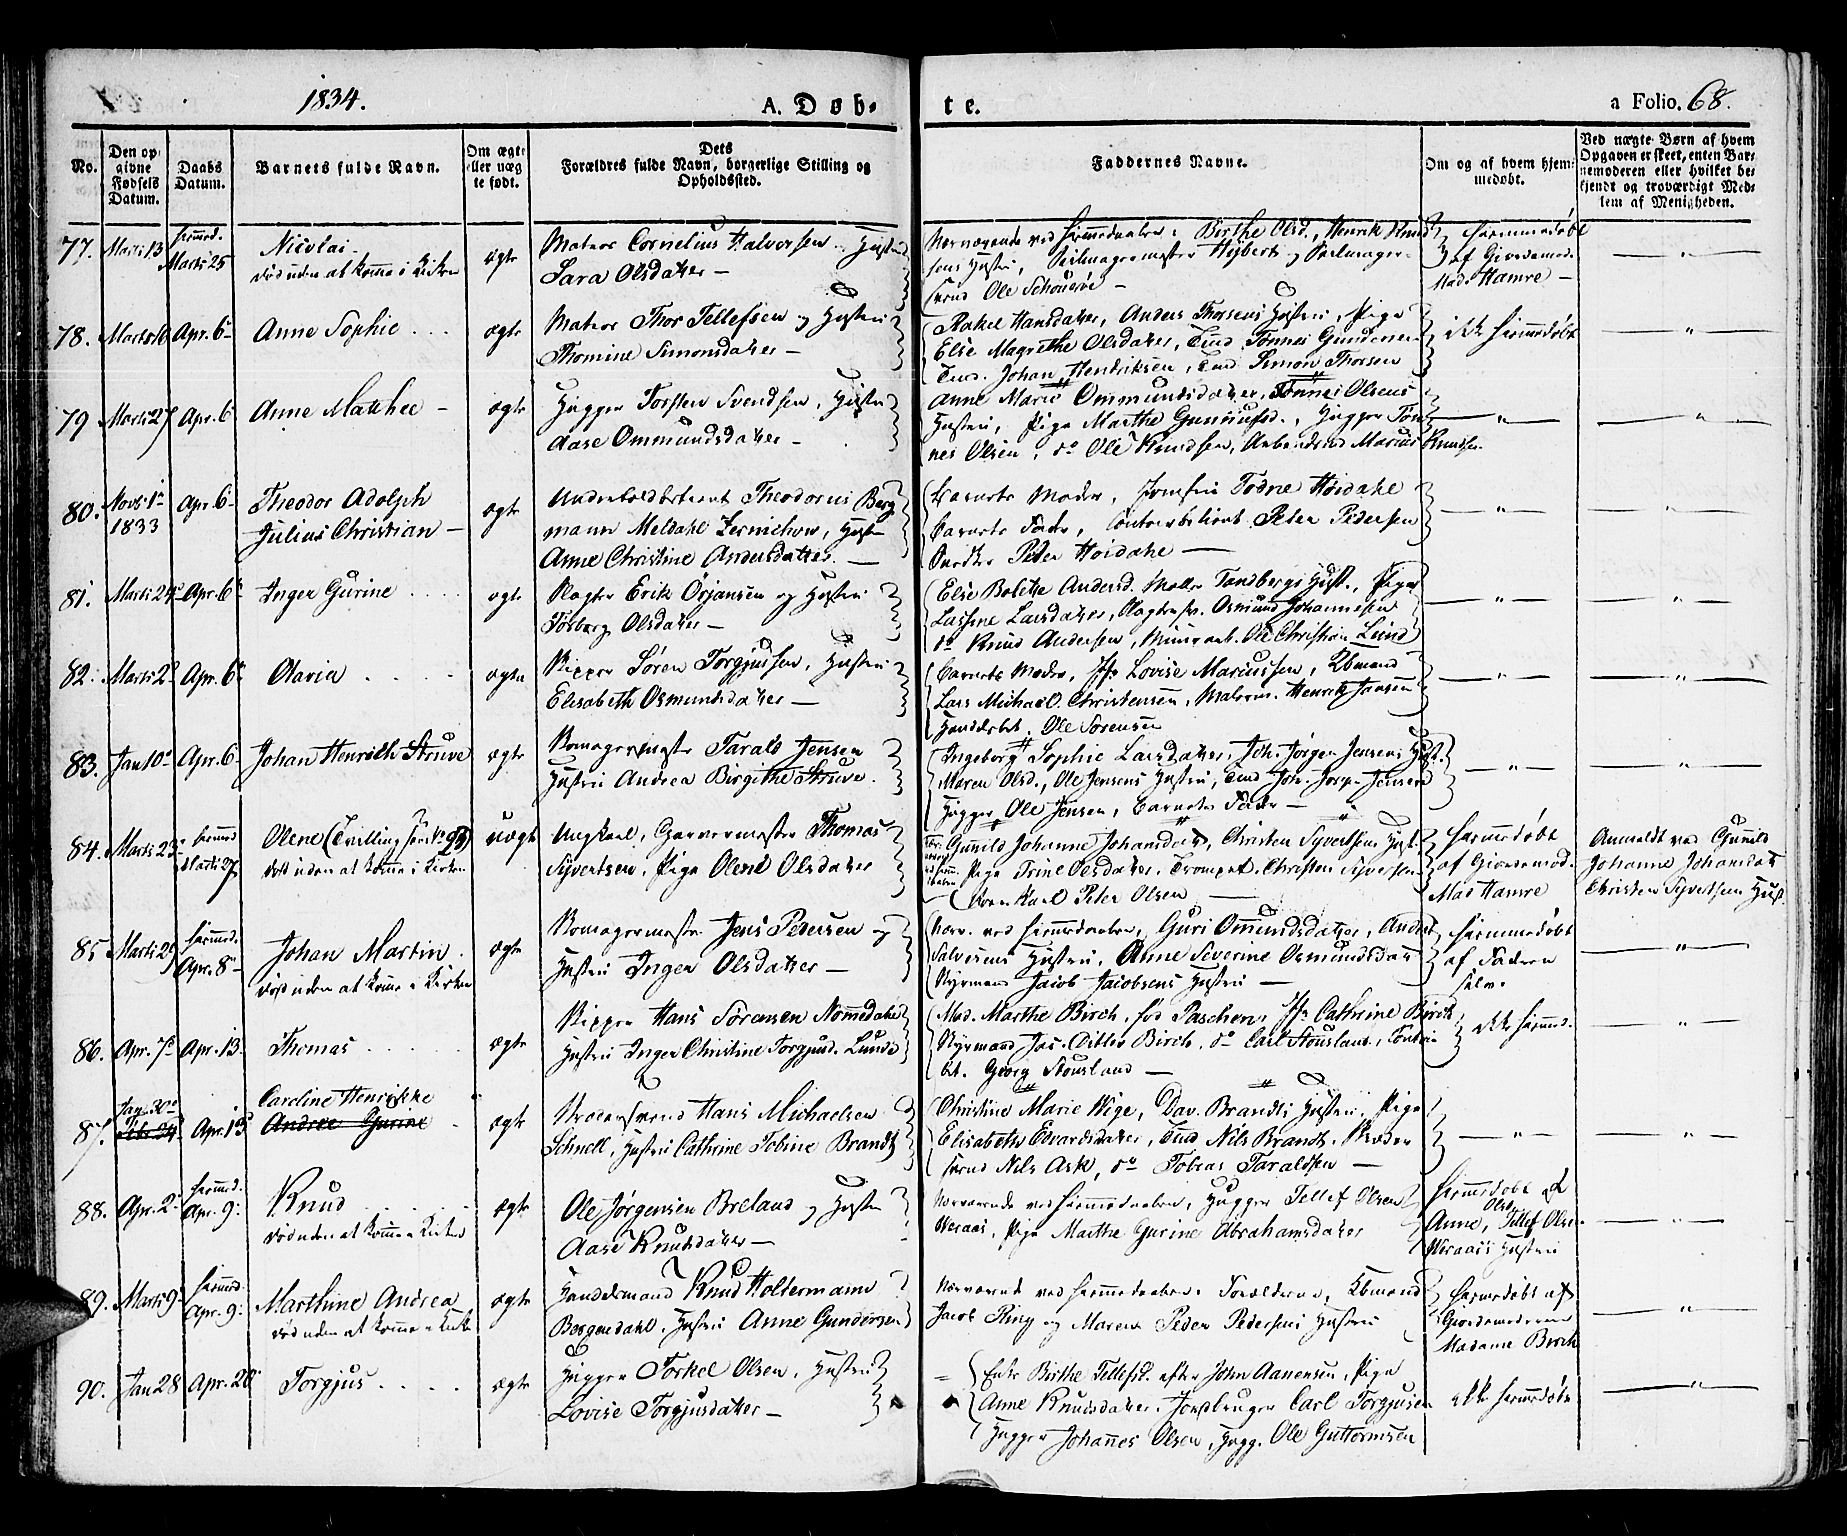 1834.
A. Döb-
te.
a Folio. 68.
No.
Den op-
givne
Fødsels
Datum.
Daabs
Datum.
Barnets fulde Navn.
Om ægte
eller uæg
te født.
Dets
Forældres fulde Navn, borgerlige Stilling og
Opholdssted.
Faddernes Navne.
Om og af hvem hjem-
medøbt.
Ved uægte Børn af hvem
Opgaven er skeet, enten Bar-
nemoderen eller hvilket be-
kjendt og troværdigt Med-
lem af Menigheden.
77. Marts 13 hjemmed. Marts 25
Nicolai
død uden at komme i Kirken
ægte
Matros Cornelius Halvorsen Hustru
Sara Olsdatter —
Nærværende ved hjemmedaaben: Birthe Olsd., Henrik Knud
sens Hustru, Seilmagermester Höjberts og Seilmager-
svend Ole Schouerøe —
hjemmedøbt
af Giordemod.
Mad. Hamre —
78. Marts 16 Apr. 6
Anne Sophie
ægte
Matros Thor Tellefsen og Hustru
Thomine Simonsdatter —
Rakel Hansdatter, Anders Thorsens Hustru, Pige
Else Magrethe Olsdatter, Tönnes Gundersen
Johan Hendriksen, Simon Thorsen
ikke hjemmedøbt
79 Marts 27 Apr. 6
Anne Mathee —
ægte
Hugger Torsten Svendsen, Hustru
Aase Ommundsdatter —
Anne Marie Ommundsdatter, Tønnes Olsens
Hustru, Pige Marthe Gunnufsd., Hugger Tön
nes Olsen, do Ole Knudsen, Marcus Knudsen
80. Novb. 1 1833 Apr. 6
Theodor Adolph
Julius Christian —
ægte
Theodorus Berg
mann Meldahl Zernichow, Hustru
Anne Christine Andersdatter. —
Barnets Moder, Jomfru Todne Höidahl
Barnets Fader, Peter Pedersen
Peter Höidahl —
81. Marts 24 Apr. 6
Inger Gurine
ægte
Slagter Erik Örjansen og Hustru
Torborg Olsdatter —
Else Bolette Andersd. Tandbergs Hust., Pige
Larsine Larsdatter, Osmund Johannesen
do Knud Andersen, Ole Christian Lund
82. Marts 2 Apr. 6
Olavia
ægte
Skipper Sören Torgjussen, Hustru
Elisabeth Osmundsdatter —
Barnets Moder, Jfr. Lovise Marcussen, Kbmand
Lars Michael Christensen, Henrik Jansen
Ole Sorensen
83. Jan 10 Apr. 6
Johan Henrich Struve
ægte
Skomagermester Tarald Jensen
Hustru Andrea Birgithe Struve.
Ingeborg Sophie Larsdatter, Joh. Jörgen Jensens Hust.
Maren Olsd., Ole Jensens Hustru, Joh. Jorg. Jensen
Hugger Ole Jensen, Barnets Fader —
84. Marts 23 hjemmed Marts 27
Olene (Tvilling
død uden at komme i Kirken
uægte
Ungkarl, Garvermester Thomas
Syvertsen, Pige Olene Olsdatter
Gunild Johanne Johansdatter, Christen Syvertsens Hust.
Pige Trine Olsdatter, Christen Syvertsen
Karl Peter Olsen —
hjemmedøbt
af Giordemod.
Mad Hamre
Anmeldt ved Gunild
Johanne Johansdatter
Christen Syvertsens Hust
85 Marts 29 hjemmed. Apr. 8
Johan Martin
død uden at komme i Kirken
ægte
Skomagermester Jens Petersen og
Hustru Inger Olsdatter —
Nærv. ved hjemmedaaben, Guri Omundsdatter, Anders
Salvesens Hustru, Anne Severine Osmundsdatter
Styrmand Jacob Jacobsens Hustru —
hjemmedøbt
af Faderen
selv.
86. Apr. 7 Apr. 13.
Thomas
ægte
Skipper Hans Sörensen Nommedahl
Hustru Inger Christine Torgjusd. Lunde
Mad. Marthe Birch, fød Paschen, Jfr. Cathrine Birch
Styrmand Jac. Ditlev Birch, do Carl Stousland,
Georg Stousland —
ikke hjemmed.
87. Jan 30
Apr. 13
Caroline Henrikke
Andree Gurine
ægte
Skrædersvend Hans Michaelsen
Schnell, Hustru Cathrine Tobine Brandt
Christine Marie Wige, Dav. Brandts Hustru, Pige
Elisabeth Edvardsdatter, Nils Brandt, Skræder
svend Nils Ask, do Tobias Taraldsen —
88. Apr. 2 hjemmed. Apr. 9.
Knud
død uden at komme i Kirken
ægte
Ole Jörgensen Breland og Hustru
Aase Knudsdatter —
Nærværende ved hjemmedaaben, Hugger Tellef Olsen
Weraas, Pige Marthe Gurine Abrahamsdatter
hjemmedøbt af
Anne Olsd, Tellef Olsen
Weraas's Hustru
89. Marts 9 hjemmed. Apr. 9.
Marthine Andrea
død uden at komme i Kirke
ægte
Handelsmand Knud Holtermann
Bergendahl, Hustru Anne Gundersen
Nærværende ved hjemmedaaben: Forældrene, Kbmand
Jacob Ring og Maren Peder Pedersens Hustru
hjemmedøbt af
Giordemoderen
Madame Birch
90. Jan 28 Apr. 20
Torgjus
ægte
Hugger Torkel Olsen, Hustru
Lovise Torgjusdatter —
Enke Birthe Tellefsd. efter John Aanensen, Pige
Anne Knudsdatter, Carl Torgjusen
Hugger Johannes Olsen, Hugg. Ole Guttormsen
ikke hjemmedøbt